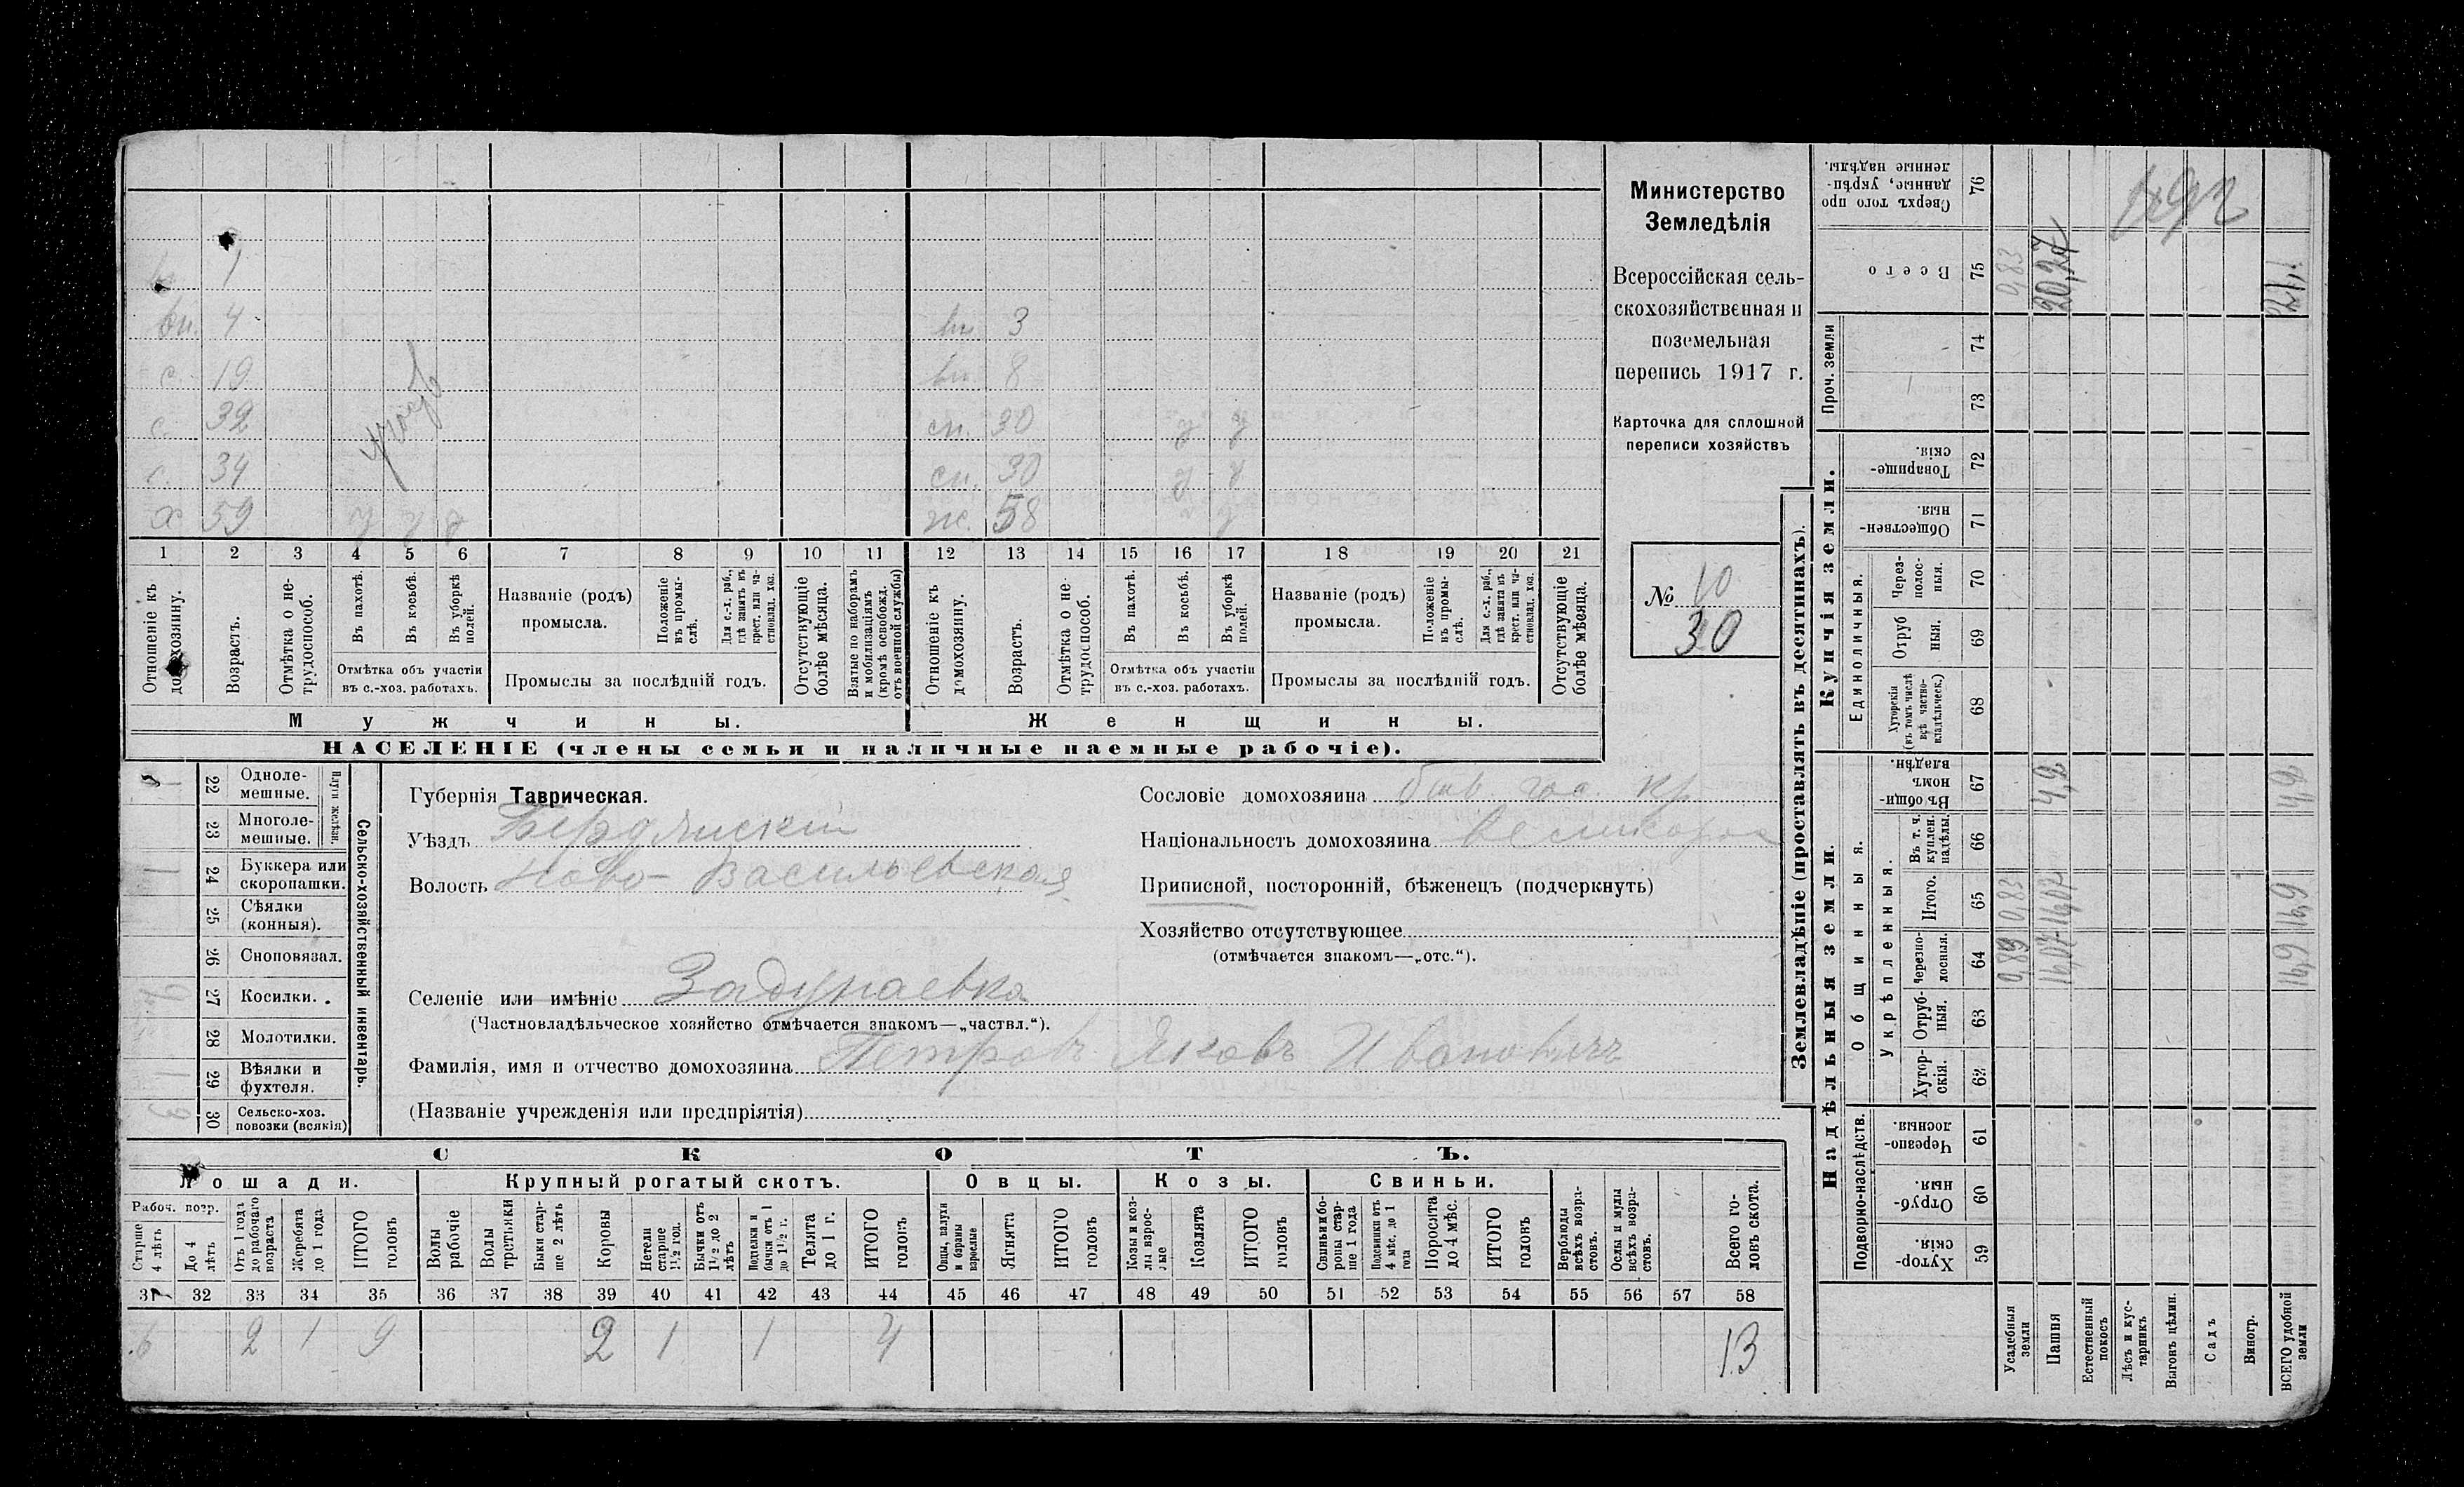 1 7
вн. 4 вн. 3
с. 19 вн. 8
с. 32 сн. 30 у у
с. 34 сн. 30 у у
х 59 у у у ж. 58 у
1 2 3 4 5 6 7 8 9 10 11 12 13 14 15 16 17 18 19 20 21
Отношеніе къ домохозяину.
Возрастъ.
Отмѣтка о нетрудоспособ.
Въ пахотѣ.
Въ косьбѣ.
Въ уборкѣ полей.
Отмѣтка объ участіи
въ с.-хоз. работахъ.
Названіе (родъ)
промысла.
Положеніе въ промыслѣ.
Для с.-х. раб., гдѣ занятъ въ крест. или частновлад. хоз.
Промыслы за послѣдній годъ.
Отсутствующіе болѣе мѣсяца.
Взятые по наборамъ и мобилизаціямъ (кромѣ освобожд. отъ военной службы)
Отношеніе къ домохозяину.
Возрастъ.
Отмѣтка о нетрудоспособ.
Въ пахотѣ.
Въ косьбѣ.
Въ уборкѣ полей.
Отмѣтка объ участіи
въ с.-хоз. работахъ.
Названіе (родъ)
промысла.
Положеніе въ промыслѣ.
Для с.-х. раб., гдѣ занята въ крест. или частновлад. хоз.
Промыслы за послѣдній годъ.
Отсутствующіе болѣе мѣсяца.
Мужчины. Женщины.
НАСЕЛЕНІЕ (члены семьи и наличные наемные рабочіе).
Министерство
Земледѣлія
Всероссійская сель-
скохозяйственная и
поземельная
перепись 1917 г.
Карточка для сплошной
переписи хозяйствъ
№ 10
30
Сельско-хозяйственный инвентарь.
Плуги желѣзн.
22 Одноле-
мешные.
23 Многоле-
мешные.
1 24 Буккера или
скоропашки.
25 Сѣялки
(конныя).
26 Сноповязал.
27 Косилки.
28 Молотилки.
1 29 Вѣялки и
фухтеля.
3 30 Сельско-хоз.
повозки (всякія)
Губернія Таврическая.
Уѣздъ Бердянскій
Волость Ново-Васильевская
Селеніе или имѣніе Задунаевка
(Частновладѣльческое хозяйство отмѣчается знакомъ—„частвл.“).
Фамилія, имя и отчество домохозяина Петровъ Яковъ Ивановичъ
(Названіе учрежденія или предпріятія)
Сословіе домохозяина быв. гос. кр.
Національность домохозяина Великоросс
Приписной, посторонній, бѣженецъ (подчеркнуть)
Хозяйство отсутствующее
(отмѣчается знакомъ—„отс.“).
СКОТЪ.
Лошади. Крупный рогатый скотъ. Овцы. Козы. Свиньи.
Рабоч. возр.
Старше 4 лѣтъ
До 4 лѣтъ
Отъ 1 года до рабочаго возраста
Жеребята до 1 года
ИТОГО головъ
Волы рабочіе
Волы третьяки
Быки старше 2 лѣтъ
Коровы
Нетели старше 1½ год.
Бычки отъ 1½ до 2 лѣтъ
Подтелки и бычки отъ 1 до 1½ г.
Телята до 1 г.
ИТОГО головъ
Овцы, валухи и бараны взрослые
Ягнята
ИТОГО головъ
Козы и козлы взрослые
Козлята
ИТОГО головъ
Свиньи и боровы старше 1 года
Подсвинки отъ 4 мѣс. до 1 года
Поросята до 4 мѣс.
ИТОГО головъ
Верблюды всѣхъ возрастовъ.
Ослы и мулы всѣхъ возрастовъ.
Всего головъ скота.
31 32 33 34 35 36 37 38 39 40 41 42 43 44 45 46 47 48 49 50 51 52 53 54 55 56 57 58
6 2 1 9 2 1 1 4 13
Землевладѣніе (проставлять въ десятинахъ).
Надѣльныя земли. Купчія земли. Проч. земли
Подворно-наслѣдств.
Общинныя.
Укрѣпленныя.
Единоличныя.
Сверхъ того проданные, укрѣпленные надѣлы. 76
Всего 75 0,83 20,27 21,1
74
73
Товарищескія. 72
Общественныя. 71
Черезполосныя. 70
Отрубныя. 69
Хуторскія (въ томъ числѣ всѣ частновладѣльческ.) 68
Въ общинномъ владѣн. 67 4,2 4,2
Въ т. ч. куплен. надѣлы. 66
Итого. 65 0,83 16,07 16,9
Черезполосныя. 64 0,83 16,07 16,9
Отрубныя. 63
Хуторскія. 62
Черезполосныя. 61
Отрубныя. 60
Хуторскія. 59
Усадебныя земли
Пашня
Естественный покосъ
Лѣсъ и кустарникъ
Выгонъ цѣлин.
Садъ
Виногр.
ВСЕГО удобной земли